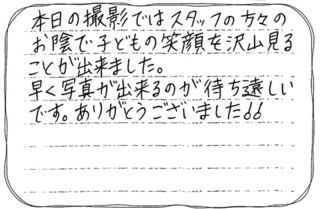 本日の撮影ではスタッフの方々の
お陰で子どもの笑顔を沢山見る
ことが出来ました。
早く写真が出来るのが待ち遠しい
です。ありがとうございました